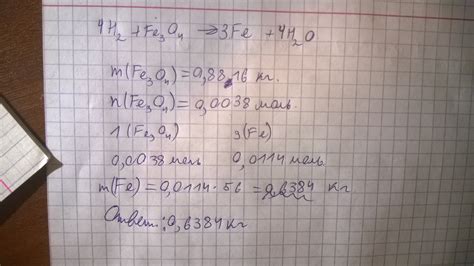 4H₂ + Fe₃O₄ → 3Fe + 4H₂O
m(Fe₃O₄) = 0,8816 кг.
n(Fe₃O₄) = 0,0038 моль.
1(Fe₃O₄) 3(Fe)
0,0038 моль 0,0114 моль.
m(Fe) = 0,0114 · 56 = 0,6384 кг
Ответ: 0,6384 кг